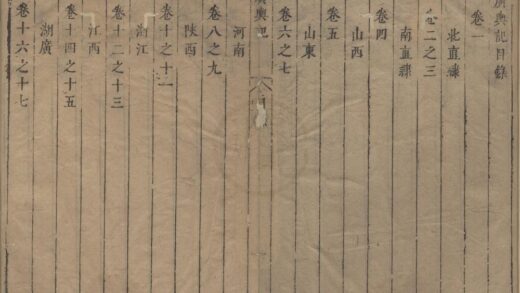 廣輿記目錄
卷一
北直隸
卷二之三
南直隸
卷四
山西
卷五
山東
卷六之七
廣輿記
河南
卷八之九
陝西
卷十之十一
浙江
卷十二之十三
江西
卷十四之十五
湖廣
卷十六之十七